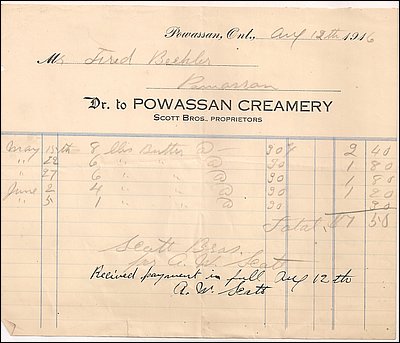 Powassan, Ont., Aug 12th 1916
Mr Fred
Powassan
Dr. to POWASSAN CREAMERY
SCOTT BROS., PROPRIETORS
May 15th 8 lbs Butter @ — 30¢ 2 40
" 22 6 " " @ 30 1 80
" 27 6 " " @ 30 1 80
June 2 4 " " @ 30 1
" 5 1 " " @ 30 30
Total $7 50
Scott Bros.
per A. W. Scott
Recived payment in full Aug 12th
A. W. Scott